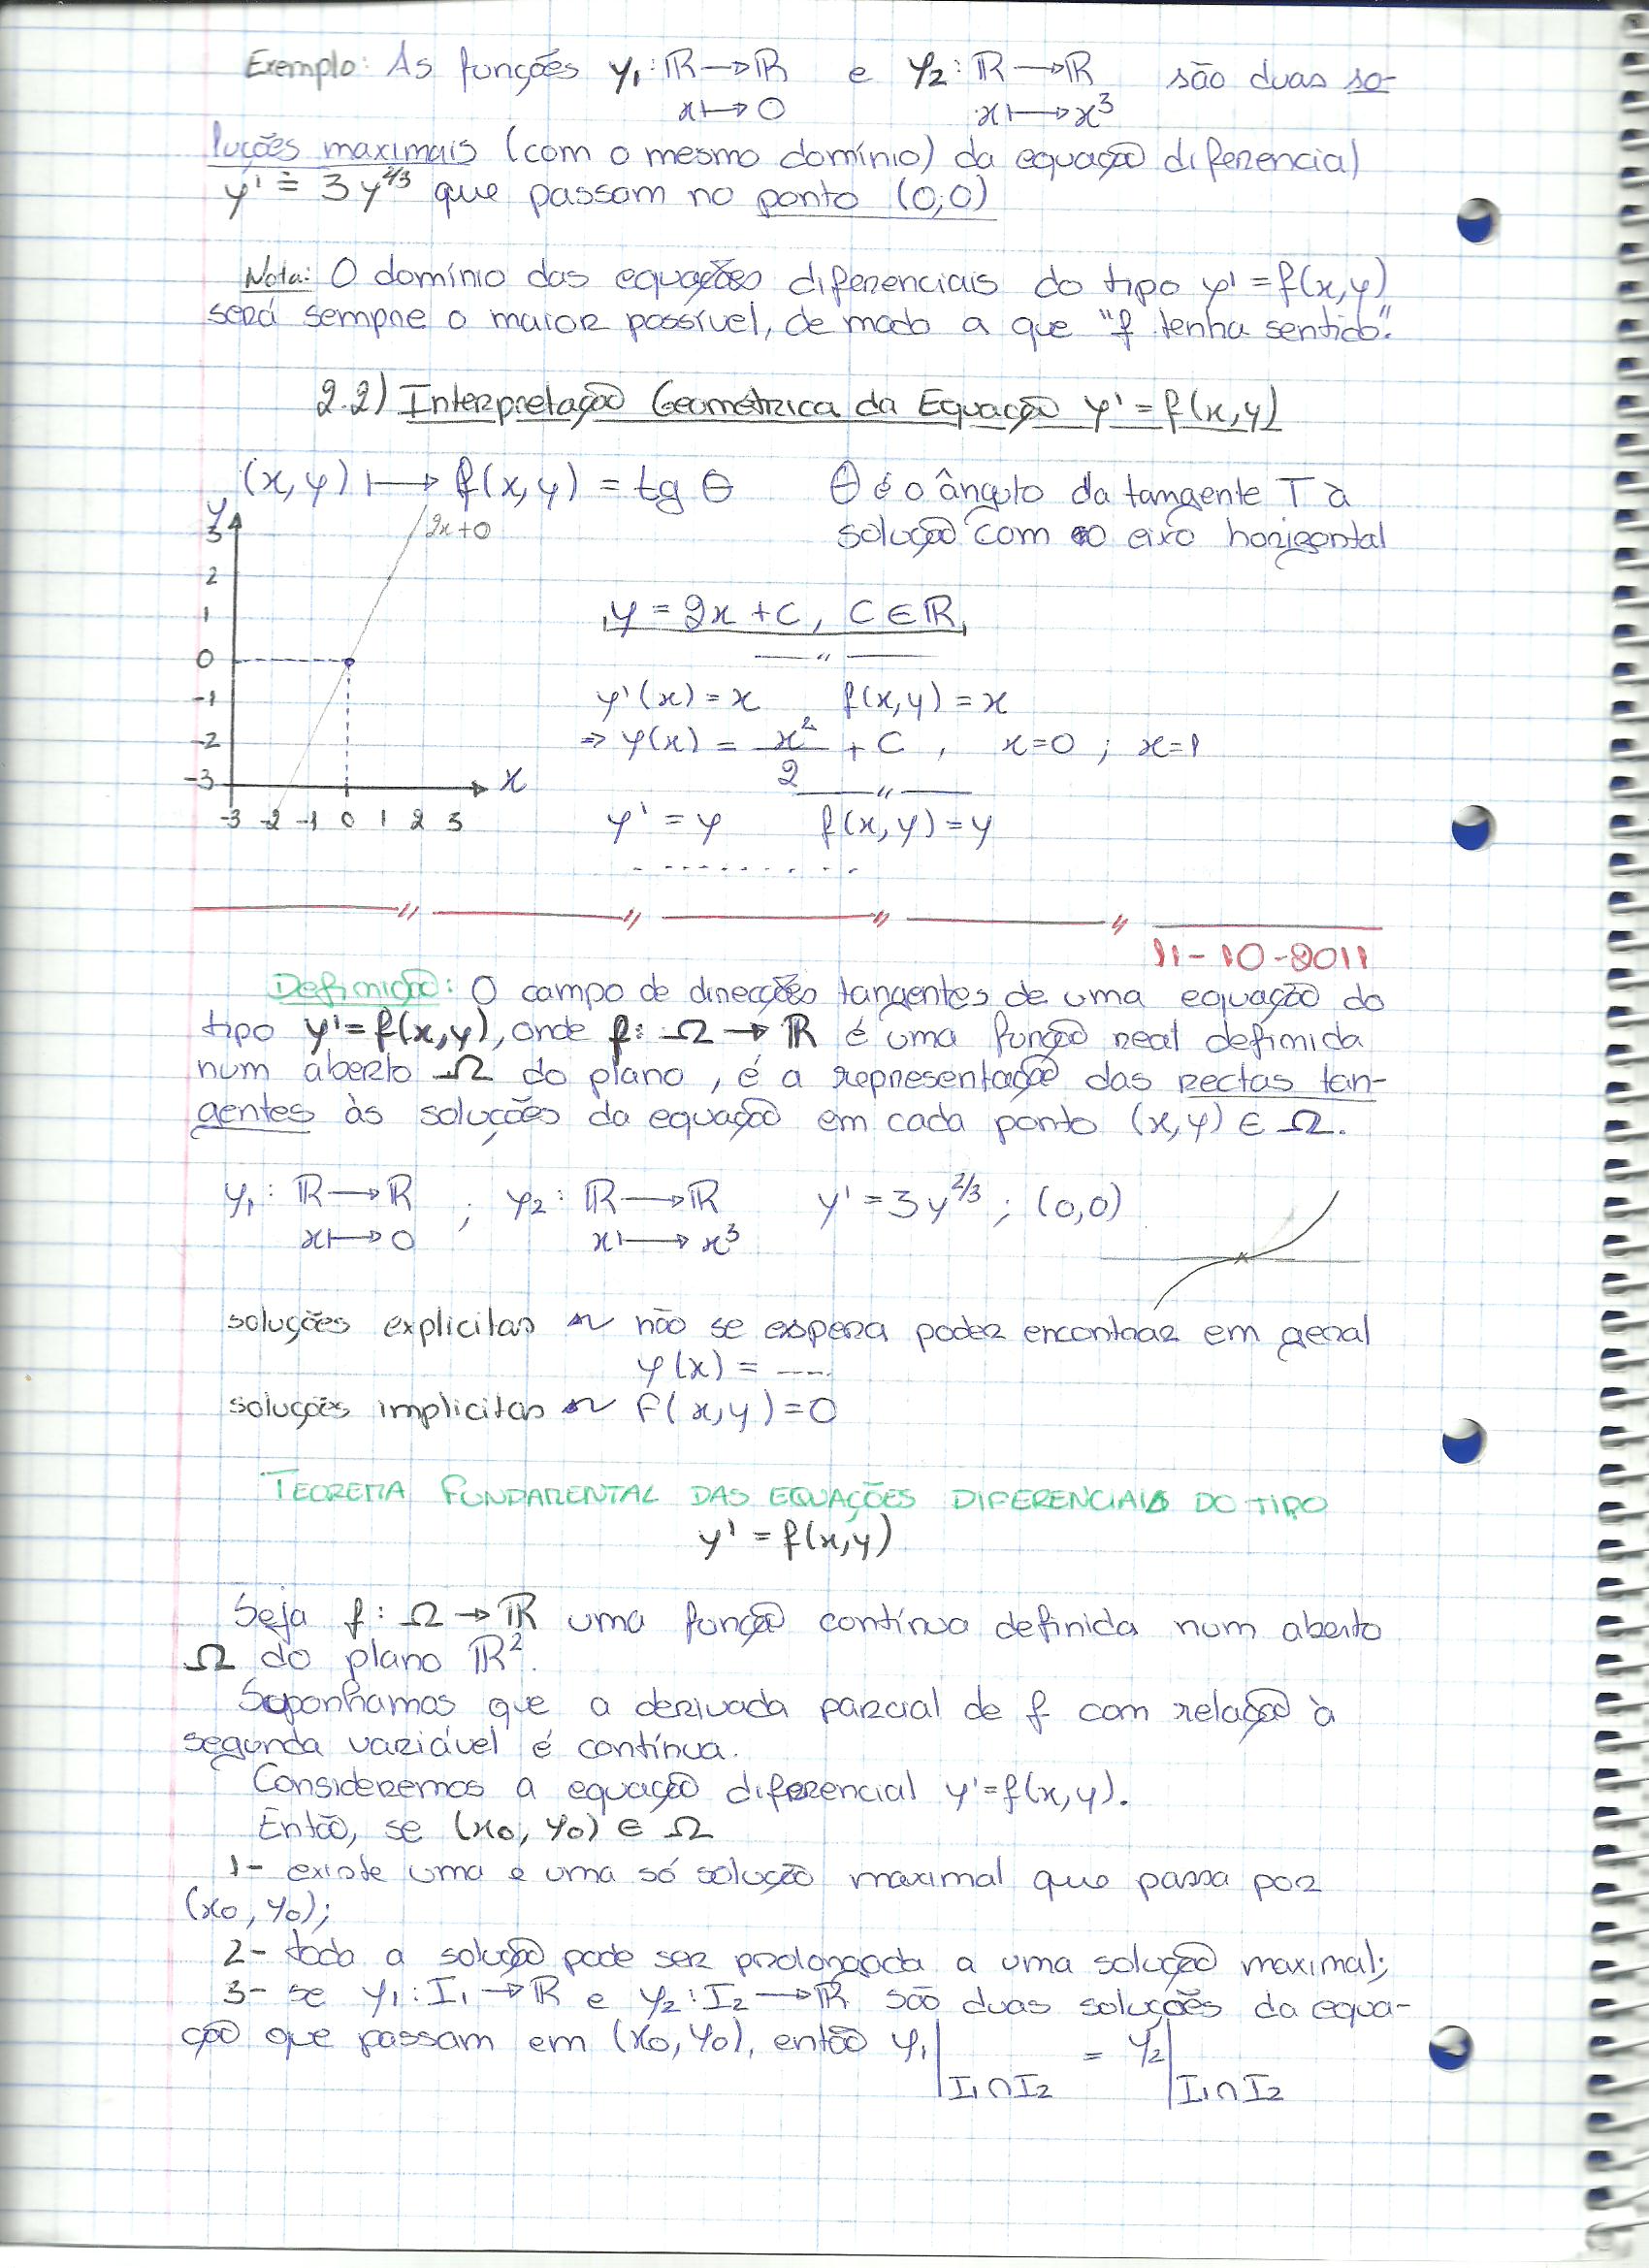 Exemplo: As funções y₁: ℝ → ℝ e y₂: ℝ → ℝ são duas so-
x ↦ 0 x ↦ x³
luções maximais (com o mesmo domínio) da equação diferencial
y' = 3y^(2/3) que passam no ponto (0,0)
Nota: O domínio das equações diferenciais do tipo y' = f(x,y)
será sempre o maior possível, de modo a que "f tenha sentido".
2.2) Interpretação Geométrica da Equação y' = f(x,y)
(x,y) ↦ f(x,y) = tg θ θ é o ângulo da tangente T à
solução com o eixo horizontal
y
2x+0
3
2
1
0
-1
-2
-3
x
-3 -2 -1 0 1 2 3
y = 2x + C, C ∈ ℝ
—— " ——
y'(x) = x f(x,y) = x
⇒ y(x) = x²/2 + C, x=0 ; x=1
—— " ——
y' = y f(x,y) = y
. . . . . . . . . .
11-10-2011
Definição: O campo de direcções tangentes de uma equação do
tipo y' = f(x,y), onde f: Ω → ℝ é uma função real definida
num aberto Ω do plano, é a representação das rectas tan-
gentes às soluções da equação em cada ponto (x,y) ∈ Ω.
y₁: ℝ → ℝ ; y₂: ℝ → ℝ y' = 3y^(2/3) ; (0,0)
x ↦ 0 x ↦ x³
soluções explicitas ~ não se espera poder encontrar em geral
y(x) = ....
soluções implicitas ~ F(x,y) = 0
TEOREMA FUNDAMENTAL DAS EQUAÇÕES DIFERENCIAIS DO TIPO
y' = f(x,y)
Seja f: Ω → ℝ uma função contínua definida num aberto
Ω do plano ℝ².
Suponhamos que a derivada parcial de f com relação à
segunda variável é contínua.
Consideremos a equação diferencial y' = f(x,y).
Então, se (x₀, y₀) ∈ Ω
1- existe uma e uma só solução maximal que passa por
(x₀, y₀);
2- toda a solução pode ser prolongada a uma solução maximal;
3- se y₁: I₁ → ℝ e y₂: I₂ → ℝ são duas soluções da equa-
ção que passam em (x₀, y₀), então y₁| = y₂|
I₁∩I₂ I₁∩I₂